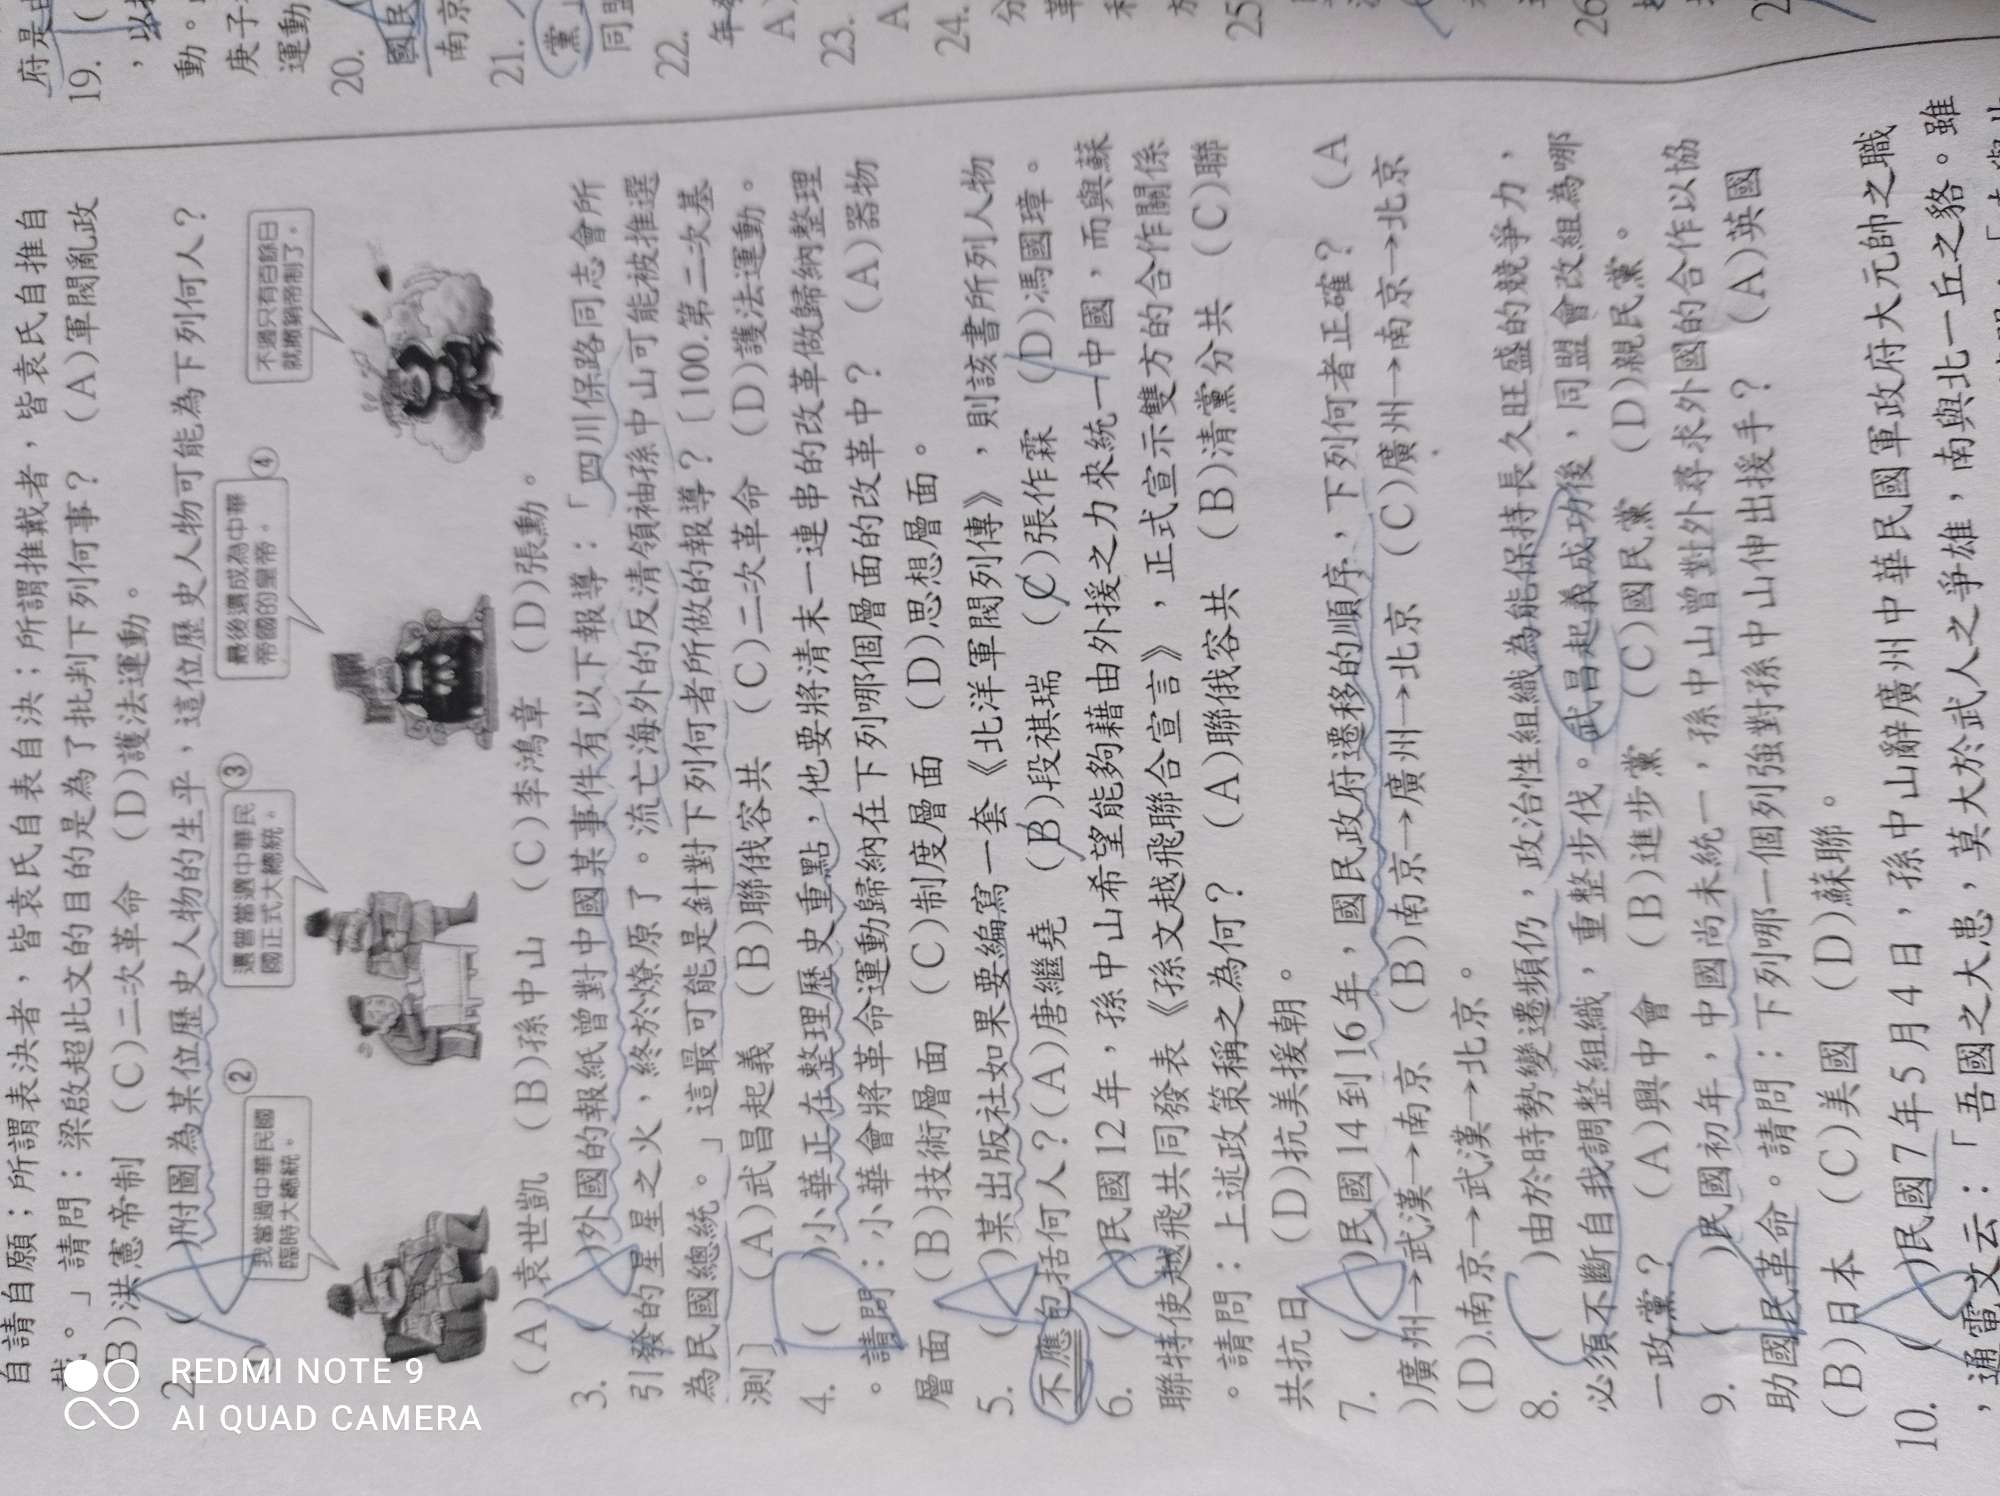 自請自願；所謂表決者，皆袁氏自表自決；所謂推戴者，皆袁氏自推自
。」請問：梁啟超此文的目的是為了批判下列何事？ (A)軍閥亂政
B)洪憲帝制 (C)二次革命 (D)護法運動。
2. ( A )附圖為某位歷史人物的生平，這位歷史人物可能為下列何人？
我當過中華民國
臨時大總統。
②
還曾當選中華民
國正式大總統。
③
最後還成為中華
帝國的皇帝。
④
不過只有百餘日
就撤銷帝制了。
(A)袁世凱 (B)孫中山 (C)李鴻章 (D)張勳。
3. ( A )外國的報紙曾對中國某事件有以下報導：「四川保路同志會所
引發的星星之火，終於燎原了。流亡海外的反清領袖孫中山可能被推選
為民國總統。」這最可能是針對下列何者所做的報導？〔100.第二次基
測〕 (A)武昌起義 (B)聯俄容共 (C)二次革命 (D)護法運動。
4. ( D )小華正在整理歷史重點，他要將清末一連串的改革做歸納整理
。請問：小華會將革命運動歸納在下列哪個層面的改革中？ (A)器物
層面 (B)技術層面 (C)制度層面 (D)思想層面。
5. ( A )某出版社如果要編寫一套《北洋軍閥列傳》，則該書所列人物
不應包括何人？(A)唐繼堯 (B)段祺瑞 (C)張作霖 (D)馮國璋。
6. ( A )民國12年，孫中山希望能夠藉由外援之力來統一中國，而與蘇
聯特使越飛共同發表《孫文越飛聯合宣言》，正式宣示雙方的合作關係
。請問：上述政策稱之為何？ (A)聯俄容共 (B)清黨分共 (C)聯
共抗日 (D)抗美援朝。
7. ( A )民國14到16年，國民政府遷移的順序，下列何者正確？ (A
)廣州→武漢→南京 (B)南京→廣州→北京 (C)廣州→南京→北京
(D)南京→武漢→北京。
8. ( C )由於時勢變遷頻仍，政治性組織為能保持長久旺盛的競爭力，
必須不斷自我調整組織，重整步伐。武昌起義成功後，同盟會改組為哪
一政黨？ (A)興中會 (B)進步黨 (C)國民黨 (D)親民黨。
9. ( D )民國初年，中國尚未統一，孫中山曾對外尋求外國的合作以協
助國民革命。請問：下列哪一個列強對孫中山伸出援手？ (A)英國
(B)日本 (C)美國 (D)蘇聯。
10. ( A )民國7年5月4日，孫中山辭廣州中華民國軍政府大元帥之職
，通電文云：「吾國之大患，莫大於武人之爭雄，南與北一丘之貉。雖
府是
19. (
，以
動。
庚子
運動
20.
國民
南京
21.
黨
同盟
22.
年
A)
23.
A
24.
分
革
25
26
REDMI NOTE 9
AI QUAD CAMERA